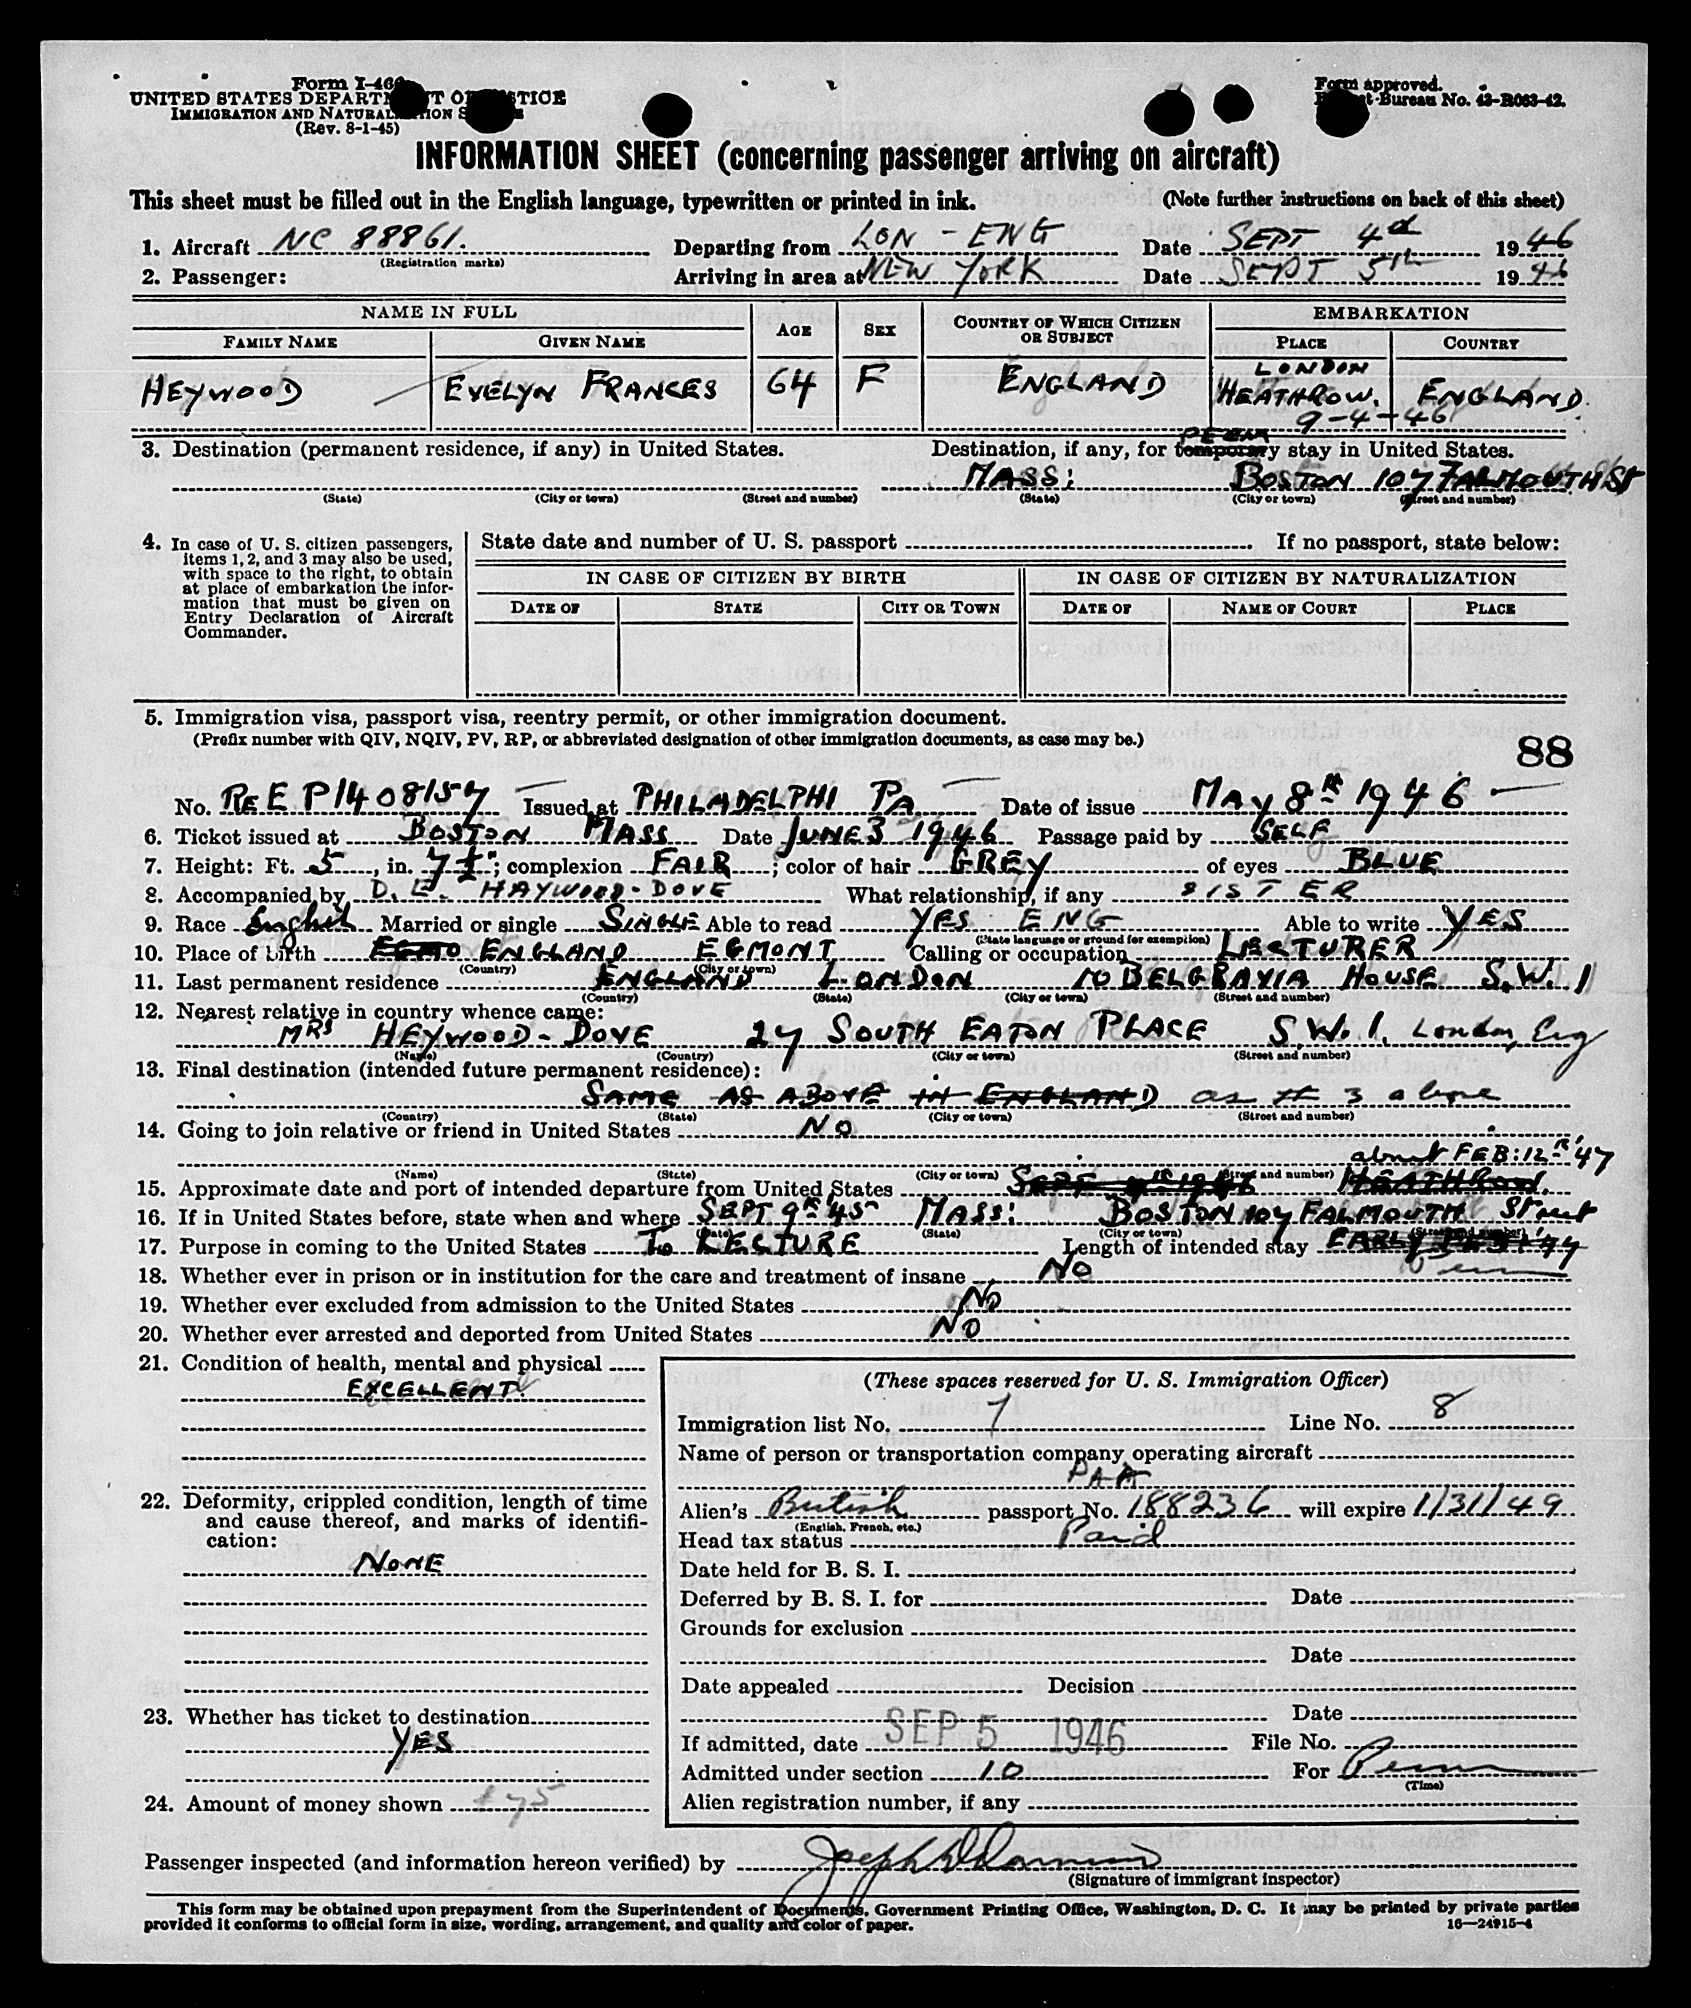 Form I-466
UNITED STATES DEPARTMENT OF JUSTICE
IMMIGRATION AND NATURALIZATION SERVICE
(Rev. 8-1-45)
Form approved.
Budget Bureau No. 43-R063-42.
INFORMATION SHEET (concerning passenger arriving on aircraft)
This sheet must be filled out in the English language, typewritten or printed in ink. (Note further instructions on back of this sheet)
1. Aircraft NC 88861. Departing from LON - ENG Date SEPT 4th 1946
(Registration marks)
2. Passenger: Arriving in area at NEW YORK Date SEPT 5TH 1946
NAME IN FULL AGE SEX COUNTRY OF WHICH CITIZEN OR SUBJECT EMBARKATION
FAMILY NAME GIVEN NAME PLACE COUNTRY
HEYWOOD EVELYN FRANCES 64 F ENGLAND LONDON HEATHROW. ENGLAND.
9-4-46
3. Destination (permanent residence, if any) in United States. Destination, if any, for temporary PERM stay in United States.
MASS: BOSTON 107 FALMOUTH St
(State) (City or town) (Street and number) (State) (City or town) (Street and number)
4. In case of U. S. citizen passengers, items 1, 2, and 3 may also be used, with space to the right, to obtain at place of embarkation the information that must be given on Entry Declaration of Aircraft Commander.
State date and number of U. S. passport If no passport, state below:
IN CASE OF CITIZEN BY BIRTH IN CASE OF CITIZEN BY NATURALIZATION
DATE OF STATE CITY OR TOWN DATE OF NAME OF COURT PLACE
5. Immigration visa, passport visa, reentry permit, or other immigration document.
(Prefix number with QIV, NQIV, PV, RP, or abbreviated designation of other immigration documents, as case may be.)
88
No. RE E P1408157 Issued at PHILADELPHI PA Date of issue MAY 8th 1946
6. Ticket issued at BOSTON MASS Date JUNE 3 1946 Passage paid by SELF
7. Height: Ft. 5, in. 7½"; complexion FAIR; color of hair GREY of eyes BLUE
8. Accompanied by D. E. HAYWOOD-DOVE What relationship, if any SISTER
9. Race English Married or single SINGLE Able to read YES ENG Able to write YES
(State language or ground for exemption)
10. Place of birth ENGLAND EGMONT Calling or occupation LECTURER
(Country) (City or town)
11. Last permanent residence ENGLAND LONDON 10 BELGRAVIA HOUSE S.W. 1
(Country) (State) (City or town) (Street and number)
12. Nearest relative in country whence came:
MRS HEYWOOD-DOVE 27 SOUTH EATON PLACE S.W.1. London, Eng
(Name) (Country) (City or town) (Street and number)
13. Final destination (intended future permanent residence):
SAME AS ABOVE IN ENGLAND as # 3 above
(Country) (State) (City or town) (Street and number)
14. Going to join relative or friend in United States NO
about FEB: 12th '47
(Name) (State) (City or town) (Street and number)
15. Approximate date and port of intended departure from United States SEPT 1946 HEATHROW.
16. If in United States before, state when and where SEPT 9th '45 MASS: BOSTON 107 FALMOUTH Street
(Date) (State) (City or town) (Street and number)
17. Purpose in coming to the United States TO LECTURE Length of intended stay EARLY FEB: '47
Perm
18. Whether ever in prison or in institution for the care and treatment of insane NO
19. Whether ever excluded from admission to the United States NO
20. Whether ever arrested and deported from United States NO
21. Condition of health, mental and physical
EXCELLENT.
22. Deformity, crippled condition, length of time and cause thereof, and marks of identification:
NONE
23. Whether has ticket to destination
YES
24. Amount of money shown £75
(These spaces reserved for U. S. Immigration Officer)
Immigration list No. 7 Line No. 8
Name of person or transportation company operating aircraft
PAA
Alien's British passport No. 188236 will expire 1/31/49
(English, French, etc.)
Head tax status Paid
Date held for B. S. I.
Deferred by B. S. I. for Date
Grounds for exclusion
Date
Date appealed Decision
Date
If admitted, date SEP 5 1946 File No.
Admitted under section 10 For Perm
(Time)
Alien registration number, if any
Passenger inspected (and information hereon verified) by
(Signature of immigrant inspector)
This form may be obtained upon prepayment from the Superintendent of Documents, Government Printing Office, Washington, D. C. It may be printed by private parties
provided it conforms to official form in size, wording, arrangement, and quality and color of paper. 16—24915-4